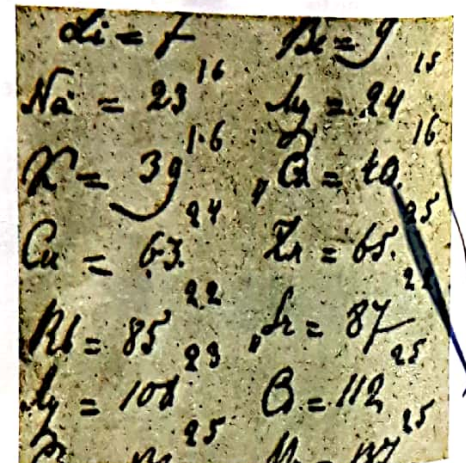 Li = 7 Be = 9
16 15
Na = 23 Mg = 24
16 16
K = 39 Ca = 40
24 25
Cu = 63. Zn = 65.
22 22
Rb = 85 Sr = 87
23 25
Ag = 108 Cd = 112
25 25